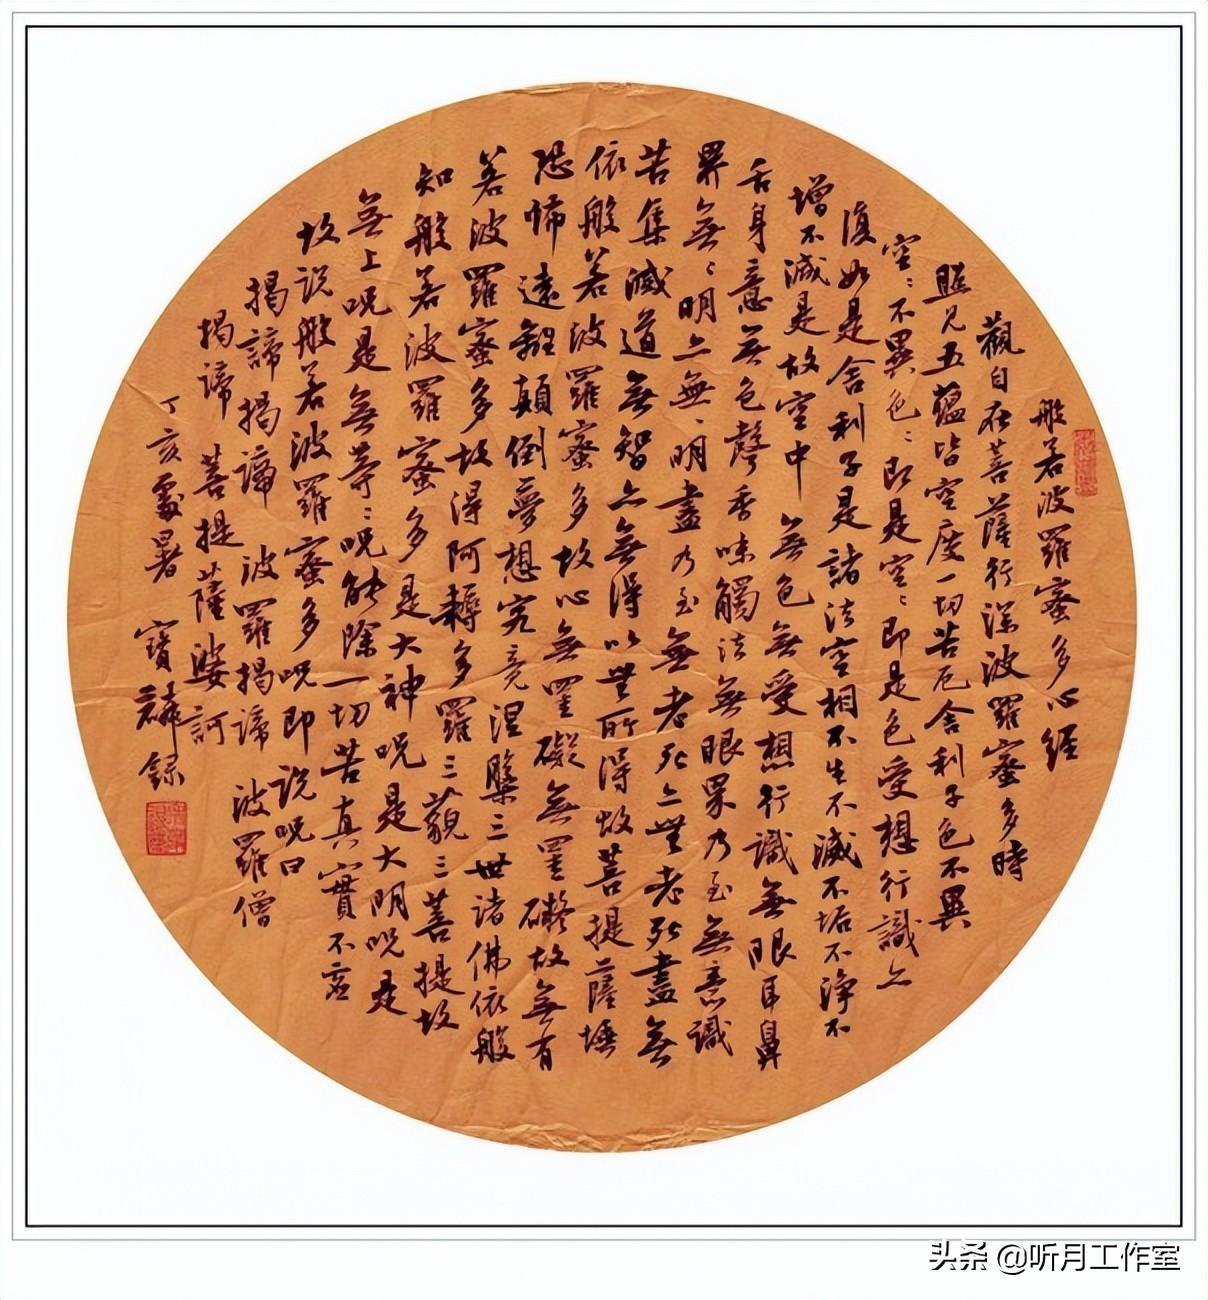 般若波羅蜜多心經
觀自在菩薩行深波羅蜜多時
照見五蘊皆空度一切苦厄舍利子色不異
空:不異色:即是空:即是色受想行識亦
復如是舍利子是諸法空相不生不滅不垢不淨不
增不減是故空中無色無受想行識無眼耳鼻
舌身意無色聲香味觸法無眼界乃至無意識
界無:明亦無:明盡乃至無老死亦無老死盡無
苦集滅道無智亦無得以無所得故菩提薩埵
依般若波羅蜜多故心無罣礙無罣礙故無有
恐怖遠離顛倒夢想究竟涅槃三世諸佛依般
若波羅蜜多故得阿耨多羅三藐三菩提故
知般若波羅蜜多是大神呪是大明呪是
無上呪是無等:呪能除一切苦真實不虛
故說般若波羅蜜多呪即說呪曰
揭諦揭諦 波羅揭諦 波羅僧
揭諦 菩提薩婆訶
丁亥處暑 寶麟錄
头条 @听月工作室